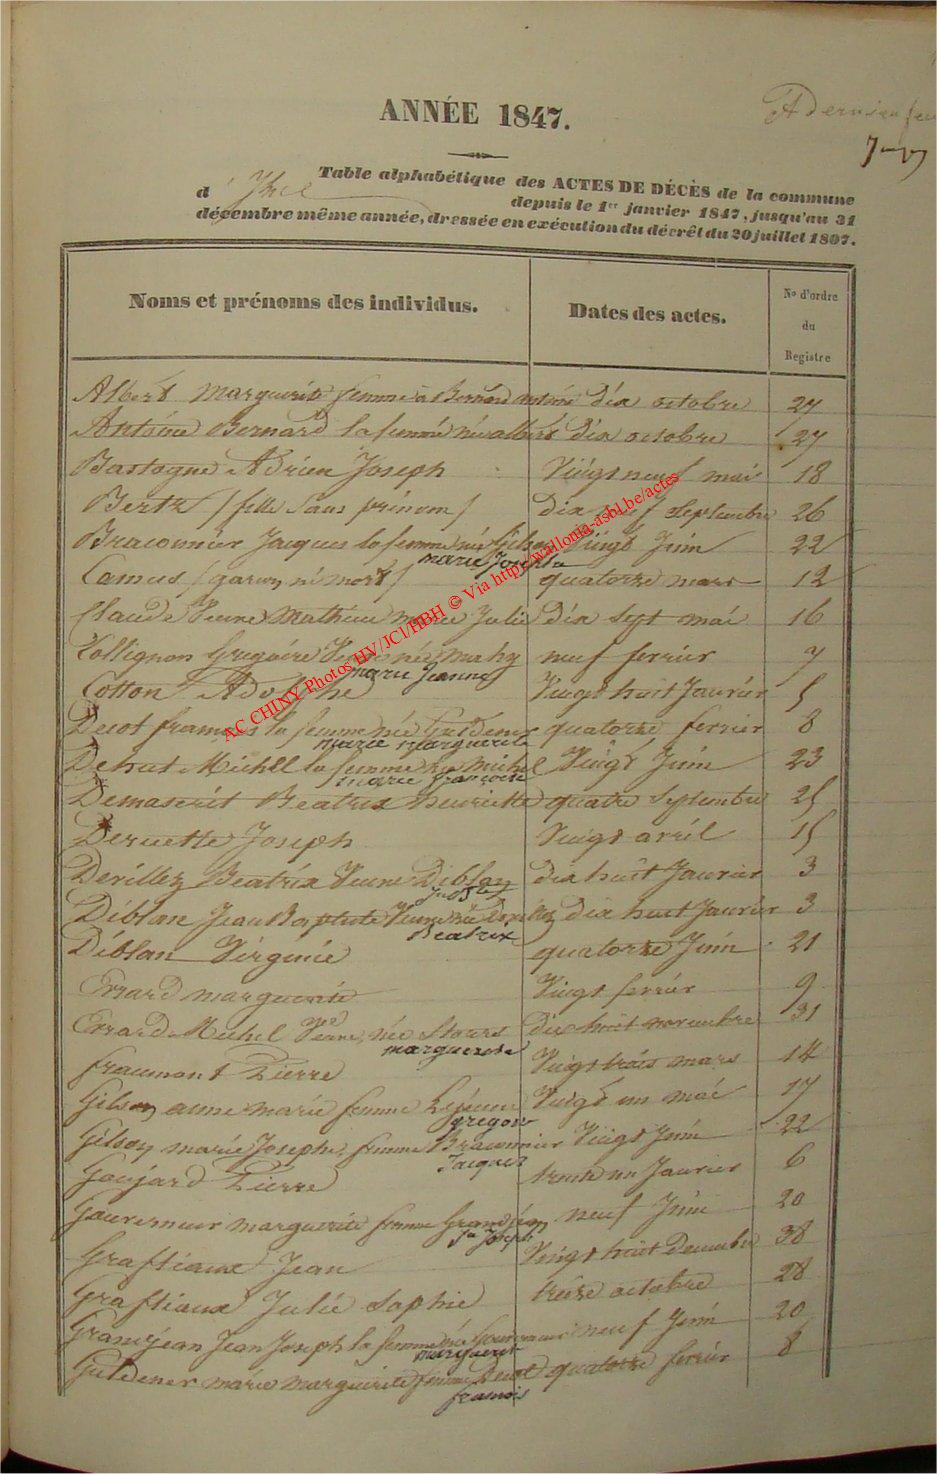 A dernier feu
ANNÉE 1847.
Table alphabétique des ACTES DE DÉCÈS de la commune
d' Izel depuis le 1er janvier 1847, jusqu'au 31
décembre même année, dressée en exécution du décrêt du 20 juillet 1807.
Noms et prénoms des individus. Dates des actes. No d'ordre du Registre
Albert Marguerite femme à Bernard Antoine dix octobre 27
Antoine Bernard la femme née albert dix octobre 27
Bastogne Adrien Joseph Vingt neuf mai 18
Bertz / fille sans prénom / dix neuf septembre 26
Braconnier Jacques la femme née Gilson Vingt Juin 22
marie Josephe
Camus / garçon né mort / quatorze mars 12
Claude Veuve Mathieu marie Julie dix sept mai 16
Collignon Grégoire Veuve née mahy neuf ferrier 7
marie Jeanne
Cotton Adolphe Vingt huit Janvier 5
Decot francois la femme née Guldener quatorze ferrier 8
marie marguerite
Dehut Michel la femme née michel Vingt Juin 23
marie françoise
Demaserit Beatrix henriette quatre septembre 25
Deruette Joseph Vingt avril 15
Derillez Beatrix Veuve Diblan dix huit Janvier 3
Diblan Jean Baptiste Veuve née Derillez dix huit Janvier 3
Beatrix
Diblan Virginie quatorze Juin 21
Errard marguerite Vingt ferrier 9
Errard Michel Veuve née Stours dix huit novembre 31
marguerite
fraumont Pierre Vingt trois mars 14
Gilson anne marie femme Lejeune Vingt un mai 17
gregoire
Gilson marie Josephe femme Braconnier Vingt Juin 22
Jacques
Goujard Pierre trente un Janvier 6
Gouverneur marguerite femme Grandjean neuf Juin 20
Jn Joseph
Graftiaux Jean Vingt huit Decembre 38
Graftiaux Julie Sophie treize octobre 28
Grandjean Jean Joseph la femme née Gouverneur neuf Juin 20
marguerite
Guldener marie marguerite femme Decot quatorze ferrier 8
francois
AC CHINY Photos HV/JCl/HBH © Via http://wallonia-asbl.be/actes